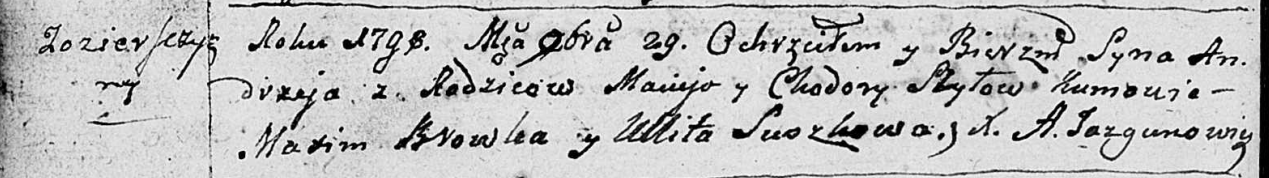 Zozierſczyz
ny
Roku 1798. Mca 8bra 29. Ochrzciłem y Bierzm Syna An.
drzeja z Rodzicow Macieja y Chodory Szyłow Kumowie —
Maxim Browka y Ullita Suszkowa. X. A. Jazgunowicz